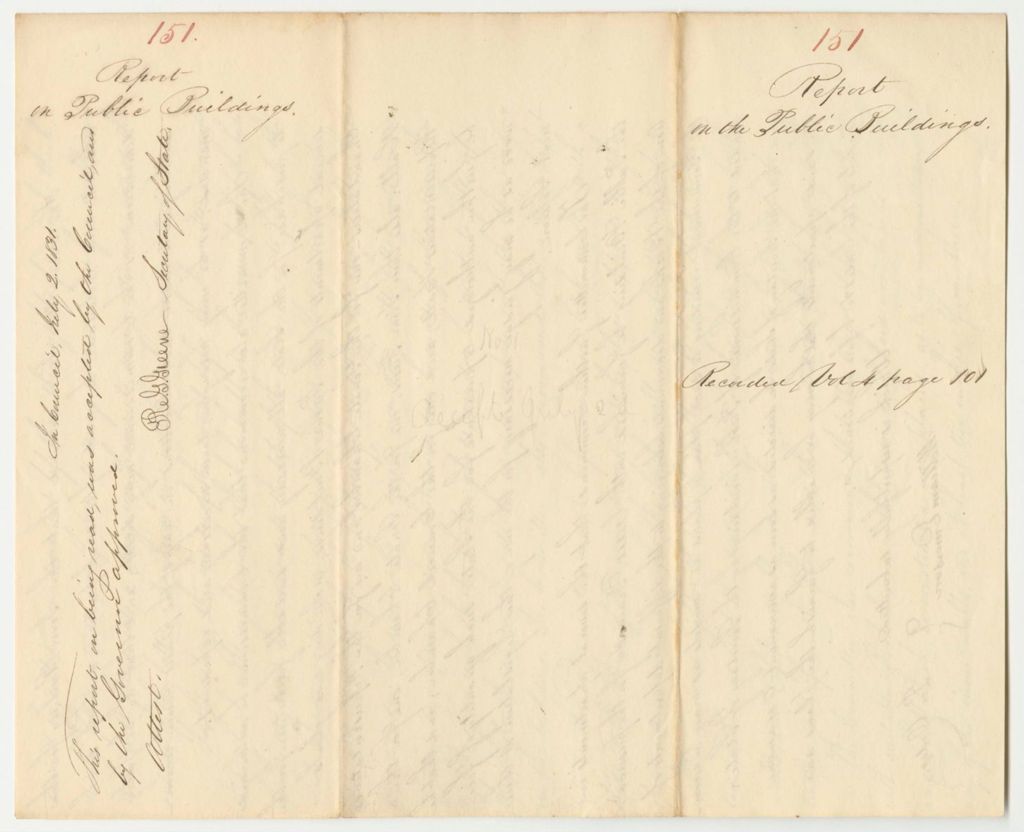 151.
Report
on Public Buildings.
In Council, July 2. 1831.
This report, on being read, was accepted by the Council, and
by the Governor approved.
Attest.
R G Greene Secretary of State.
151
Report
on the Public Buildings.
Recorded Vol 4 page 101